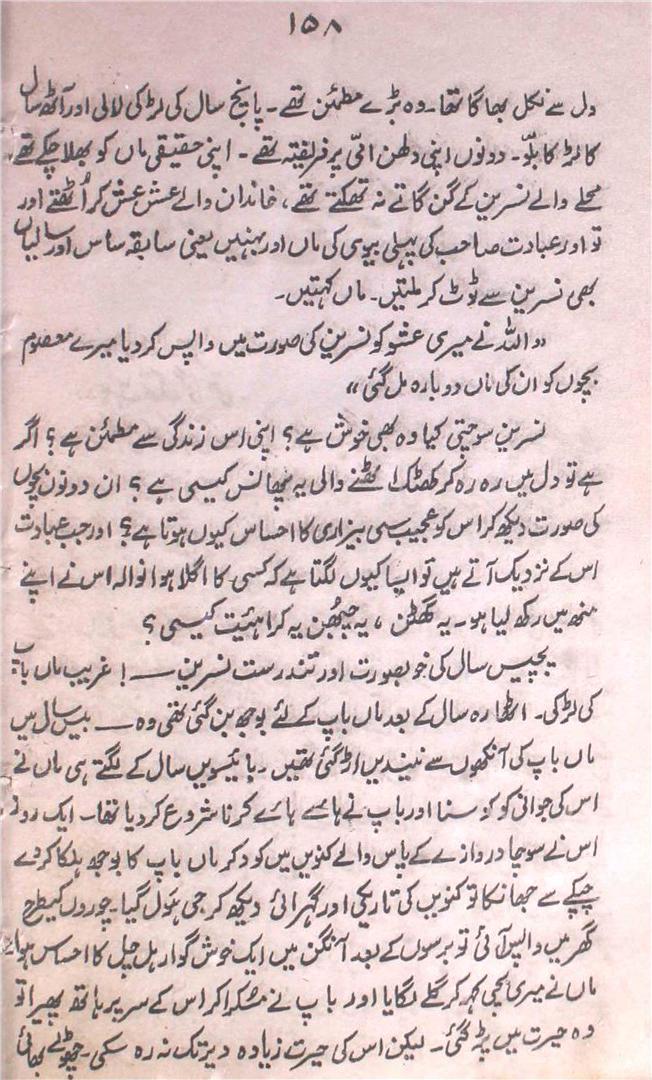 ۱۵۸
دل سے نکل بھاگا تھا۔ وہ بڑے مطمئن تھے۔ پانچ سال کی لڑکی لالی اور آٹھ سال
کا لڑکا بلّو۔ دونوں اپنی دلھن امّی پر فریفتہ تھے۔ اپنی حقیقی ماں کو بھلا چکے تھے،
محلے والے نسرین کے گن گاتے نہ تھکتے تھے، خاندان والے عش عش کر اُٹھتے اور
تو اور عبادت صاحب کی پہلی بیوی کی ماں اور بہنیں یعنی سابقہ ساس اور سالیاں
بھی نسرین سے ٹوٹ کر ملتیں۔ ماں کہتیں۔
"اللہ نے میری عشو کو نسرین کی صورت میں واپس کر دیا میرے معصوم
بچوں کو ان کی ماں دوبارہ مل گئی"
نسرین سوچتی کیا وہ بھی خوش ہے؟ اپنی اس زندگی سے مطمئن ہے؟ اگر
ہے تو دل میں رہ رہ کر کھٹک اٹھنے والی یہ پھانس کیسی ہے؟ ان دونوں بچوں
کی صورت دیکھ کر اس کو عجیب سی بیزاری کا احساس کیوں ہوتا ہے؟ اور جب عبادت
اس کے نزدیک آتے ہیں تو ایسا کیوں لگتا ہے کہ کسی کا اگلا ہوا نوالہ اس نے اپنے
منھ میں رکھ لیا ہو۔ یہ گھٹن، یہ چبھُن یہ کراہئیت کیسی؟
پچیس سال کی خوبصورت اور تندرست نسرین —! غریب ماں باپ
کی لڑکی۔ اٹھارہ سال کے بعد ماں باپ کے لئے بوجھ بن گئی تھی وہ — بیس سال میں
ماں باپ کی آنکھوں سے نیندیں اڑ گئی تھیں۔ بائیسویں سال کے لگتے ہی ماں نے
اس کی جوانی کو کوسنا اور باپ نے ہائے ہائے کرنا شروع کر دیا تھا۔ ایک روز
اس نے سوچا دروازے کے پاس والے کنویں میں کود کر ماں باپ کا بوجھ ہلکا کر دے
چپکے سے جھانکا تو کنویں کی تاریکی اور گہرائی دیکھ کر جی ہَول گیا۔ چوروں کیطرح
گھر میں واپس آئی تو برسوں کے بعد آنگن میں ایک خوش گوار ہل چل کا احساس ہوا۔
ماں نے میری بچی کہہ کر گلے لگایا اور باپ نے مُسکرا کر اس کے سر پر ہاتھ پھیرا تو
وہ حیرت میں پڑ گئی۔ لیکن اس کی حیرت زیادہ دیر تک نہ رہ سکی۔ چھوٹے بھائی